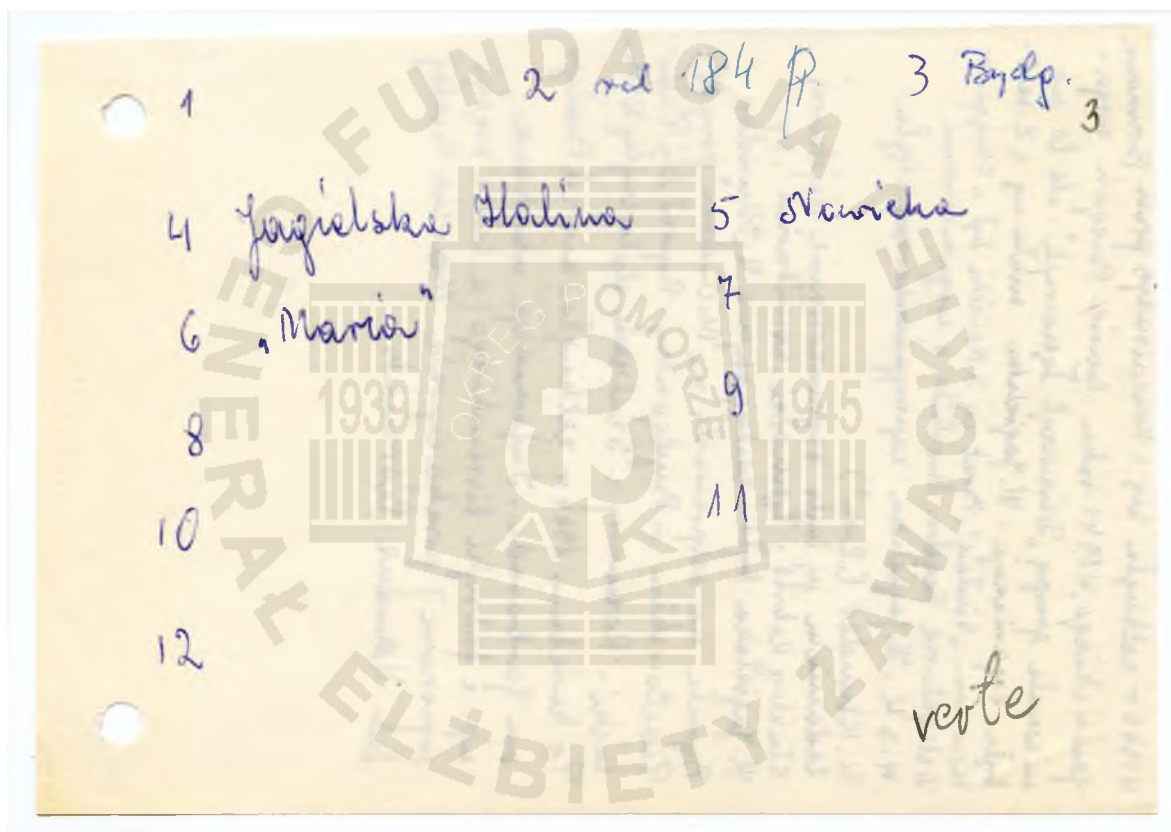 1 2 rel 184 P. 3 Bydg.
3
4 Jagielska Halina 5 Nowicka
6 „Maria" 7
8 9
10 11
12
verte
FUNDACJA GENERAŁ ELŻBIETY ZAWACKIEJ
OKRĘG POMORZE
1939 1945
AK